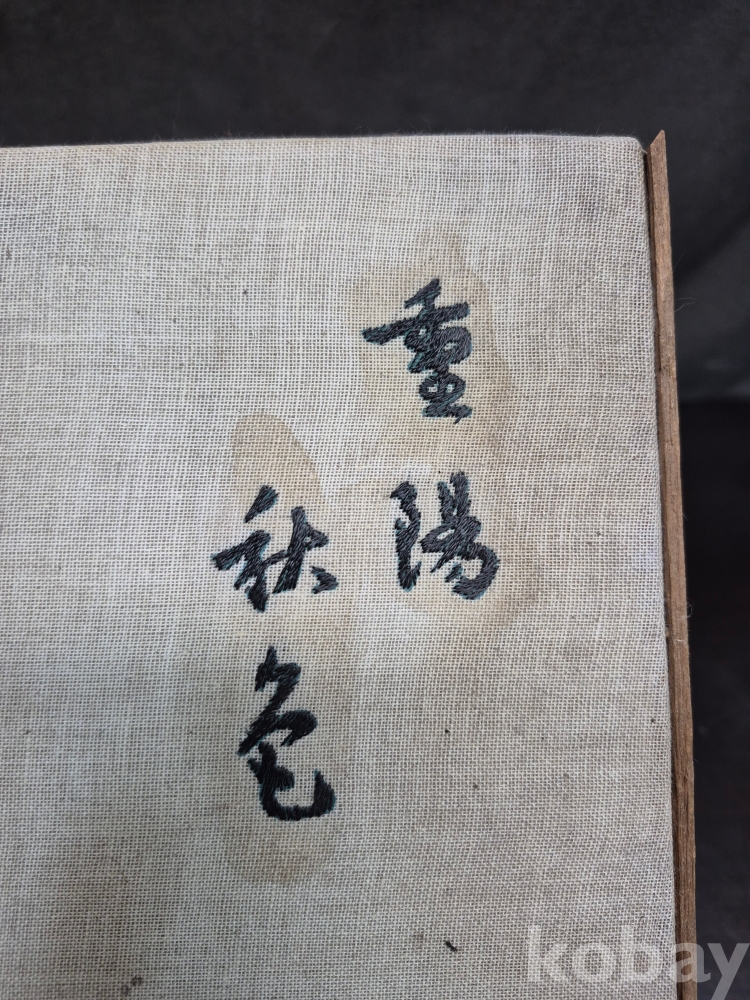 重陽
秋色
kobay